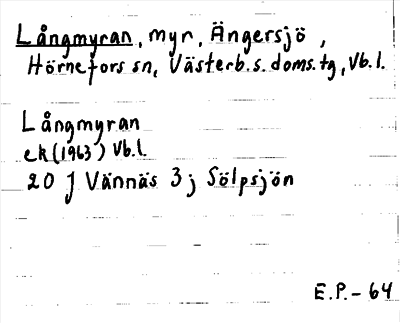 Långmyran, myr, Ängersjö,
Hörnefors sn, Västerb.s.doms.tg, Vb.l.
Långmyran
ek (1963) Vb.l.
20 J Vännäs 3 j Sölpsjön
E.P. - 64